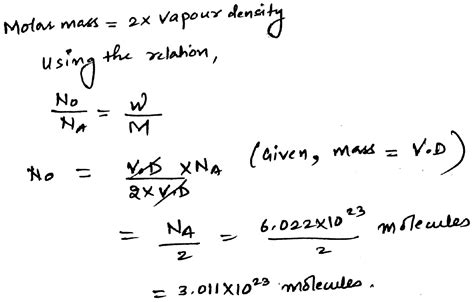 Molar mass = 2x Vapour density
using the relation,
No/NA = W/M
No = V.D/2×V.D ×NA (Given, mass = V.D)
= NA/2 = 6.022×10²³/2 molecules
= 3.011×10²³ molecules.